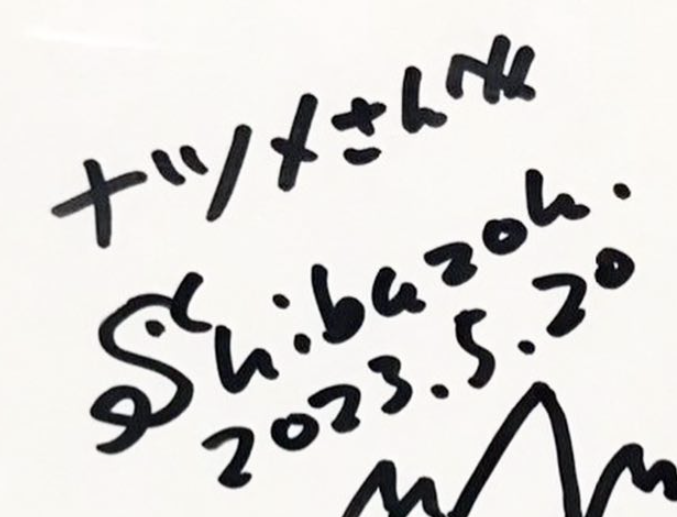 ナツメさん江
Shibazoh.
2023.5.20